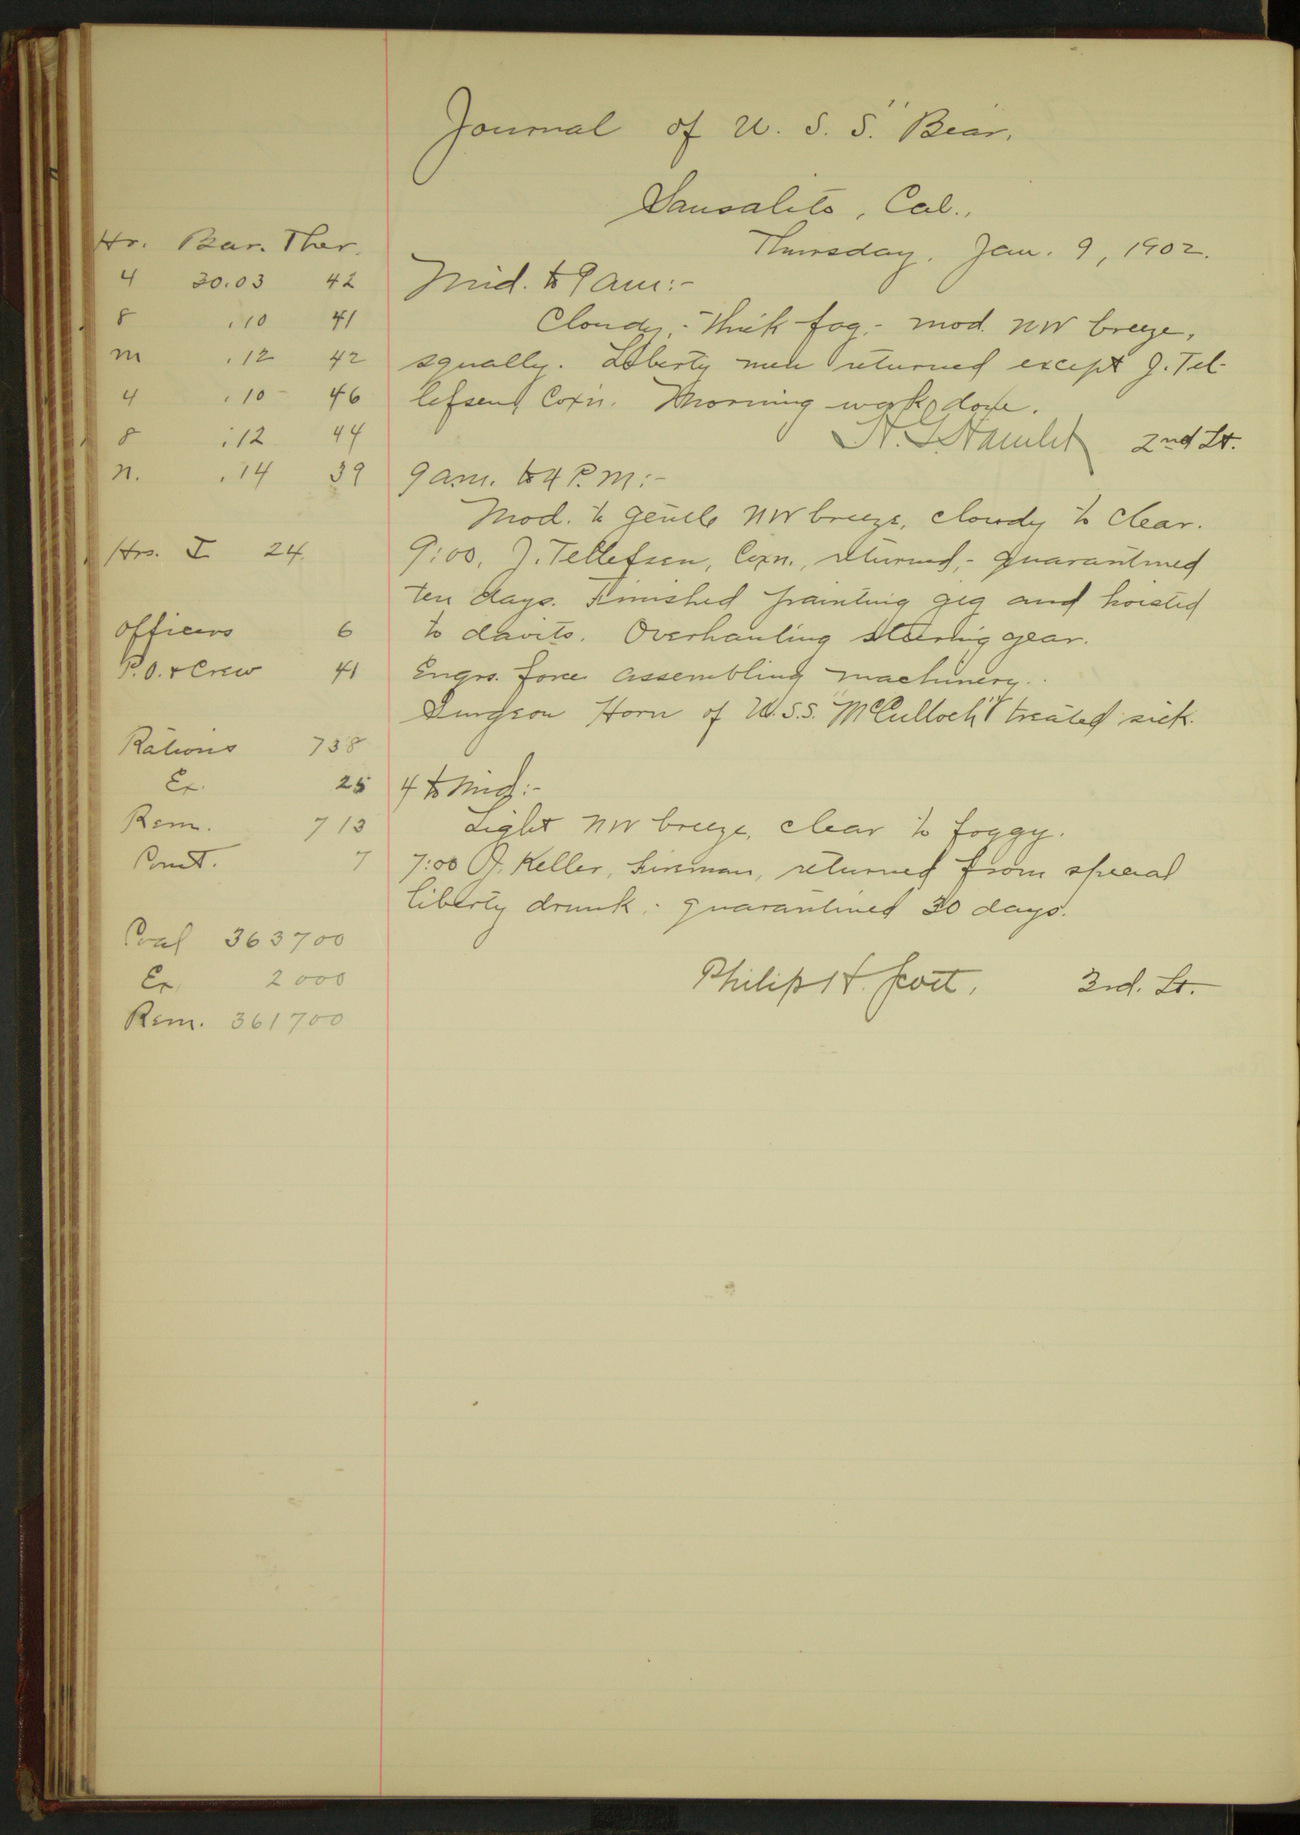 Journal of U. S. S. "Bear.
Sausalito, Cal.,
Thursday, Jan. 9, 1902.
Hr. Bar. Ther.
4 30.03 42
8 .10 41
m .12 42
4 .10 46
8 .12 44
n. .14 39
Hrs. I 24.
Officers 6
P.O. & Crew 41
Rations 738
Ex. 25
Rem. 713
Comt. 7
Coal 363700
Ex. 2000
Rem. 361700
Mid. to 9 am:-
Cloudy,- Thick fog,- mod. NW breeze,
squally. Liberty men returned except J. Tel-
lefsen, Coxn. Morning work done.
H. G. Hamlet 2nd Lt.
9 a.m. to 4 P.M:-
Mod. to gentle NW breeze, cloudy to clear.
9:00, J. Tellefsen, Coxn., returned,- quarantined
ten days. Finished painting gig and hoisted
to davits. Overhauling steering gear.
Engrs. force assembling machinery.
Surgeon Horn of U.S.S. "McCulloch" treated sick.
4 to mid:-
Light NW breeze, clear to foggy.
7:00 J. Keller, Fireman, returned from special
liberty drunk,- quarantined 30 days.
Philip H. Scott, 3rd. Lt.